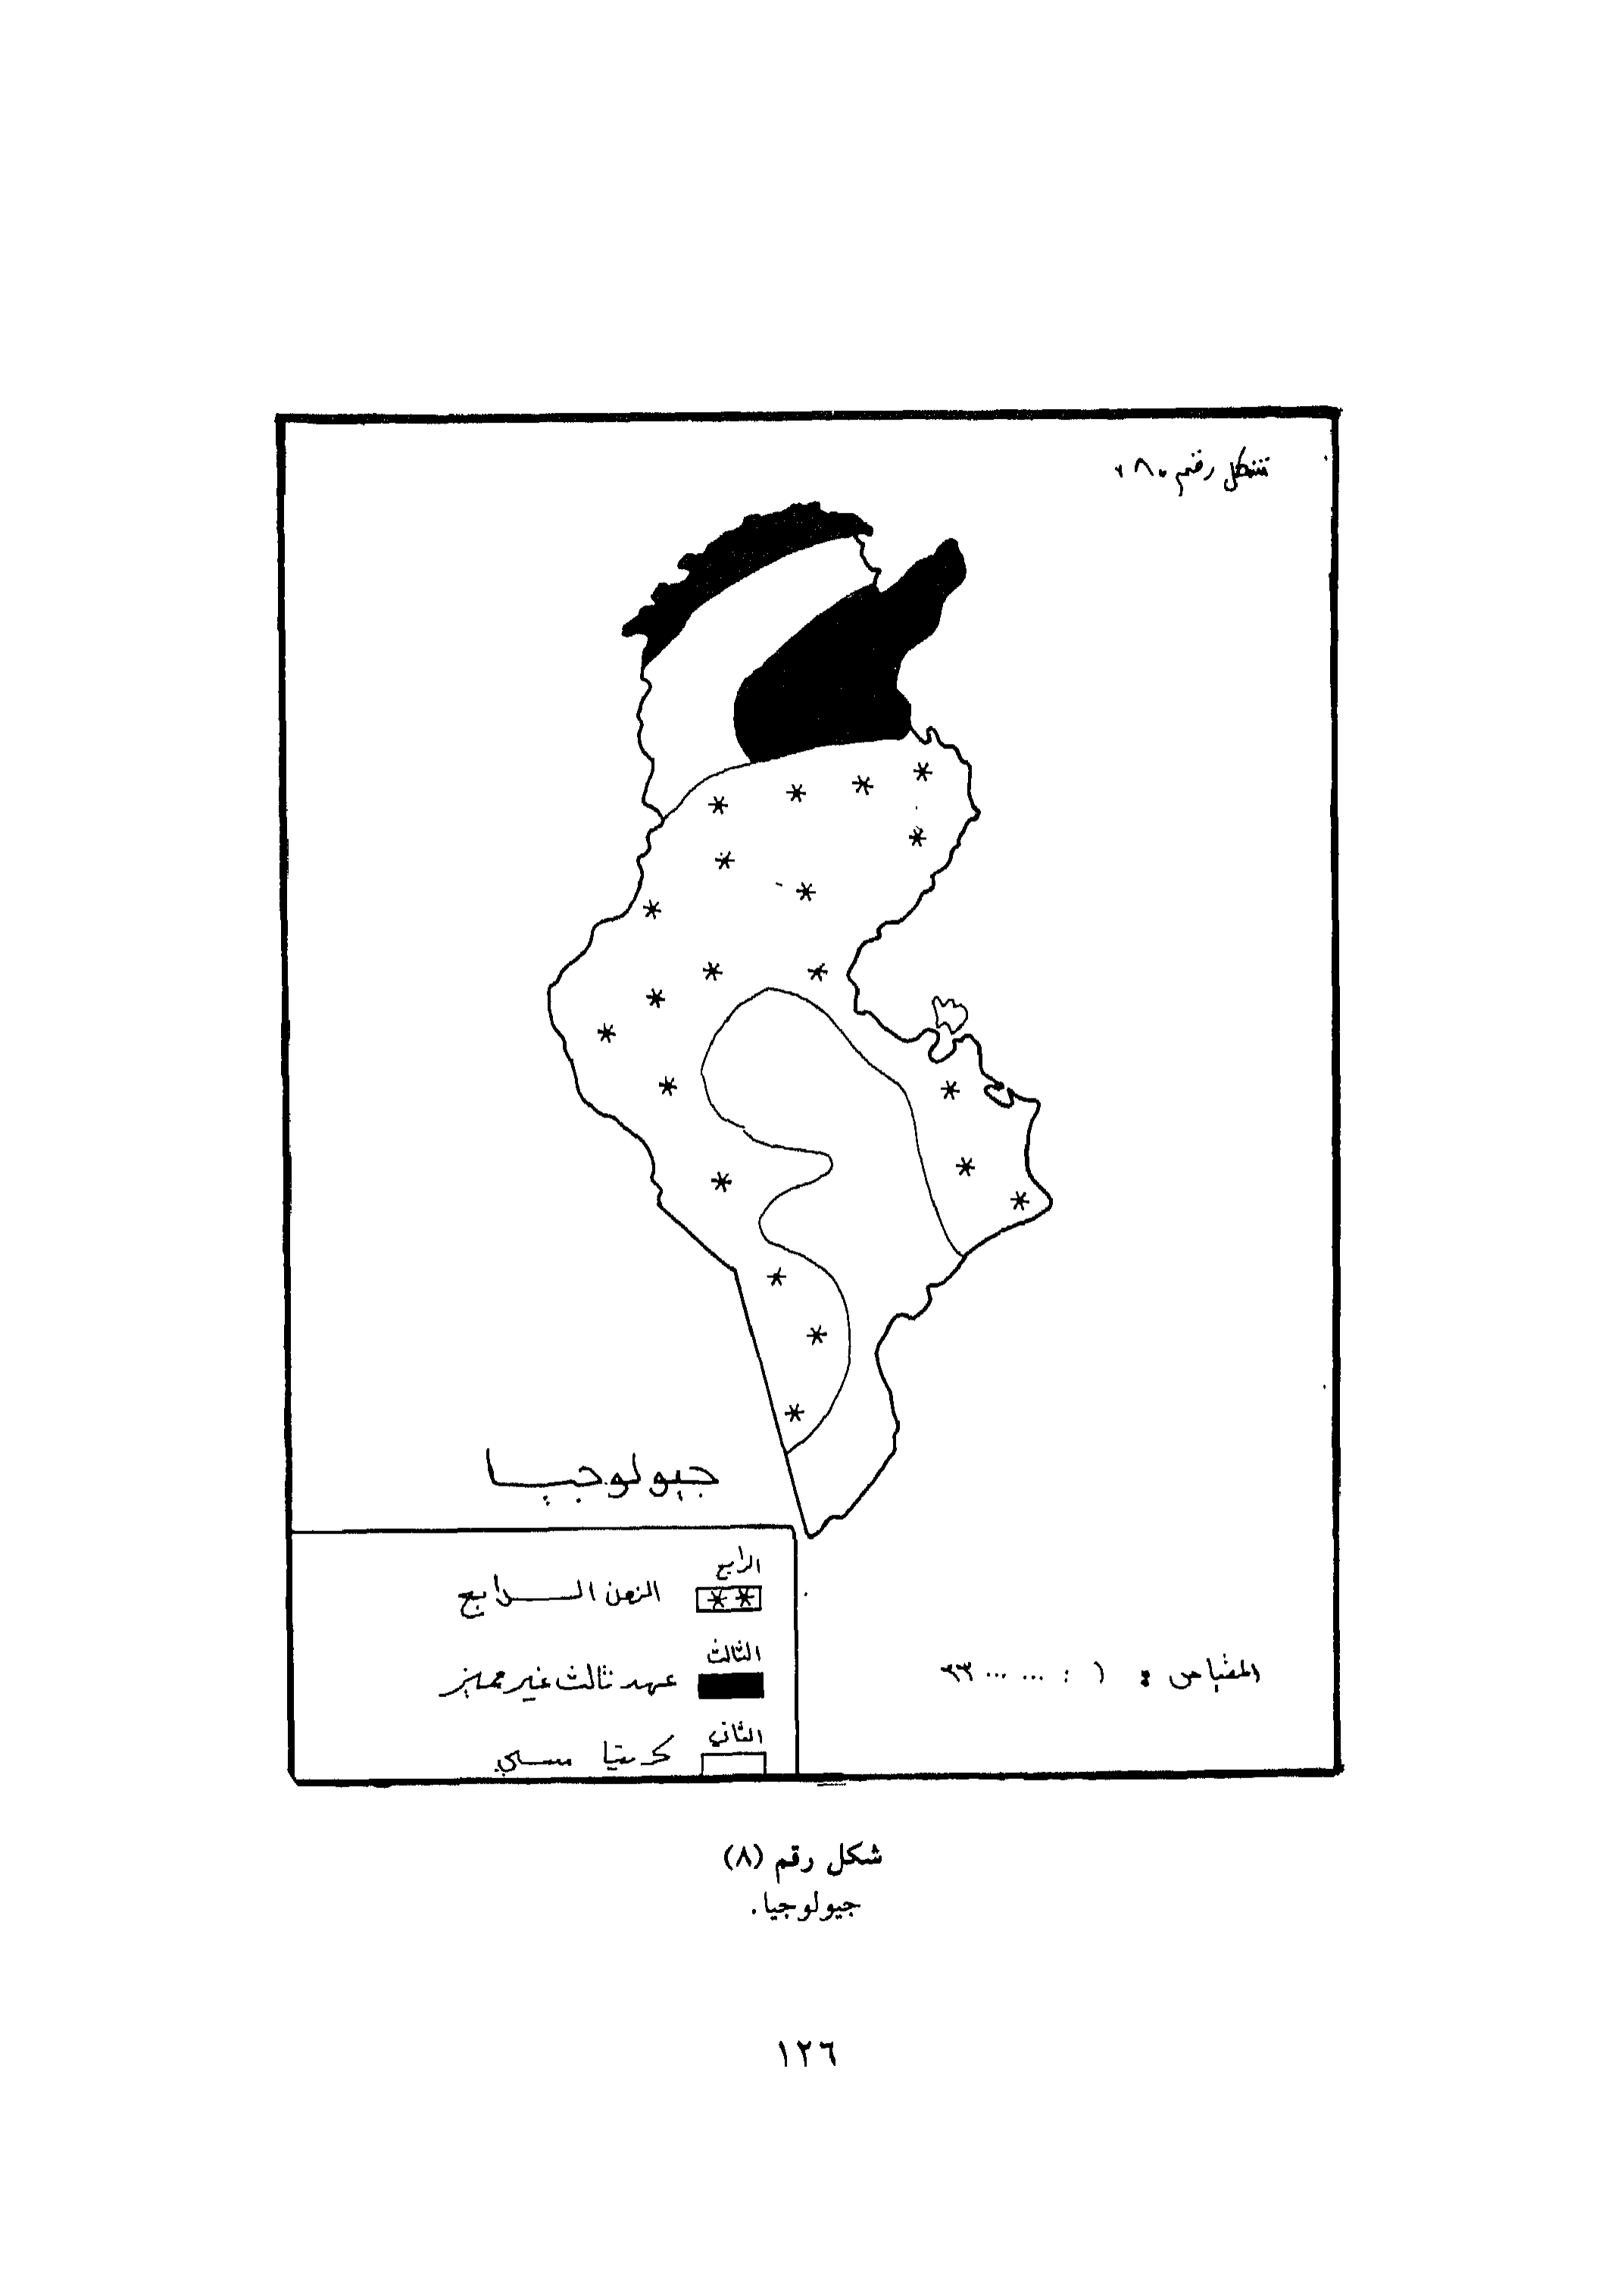 شكل رقم ٨٠
جيولوجيا
الرابع
الزمن الرابع
الثالث
عهد ثالث غير مميز
الثاني
كريتاسي
المقياس : ١ :
شكل رقم (٨)
جيولوجيا.
١٢٦